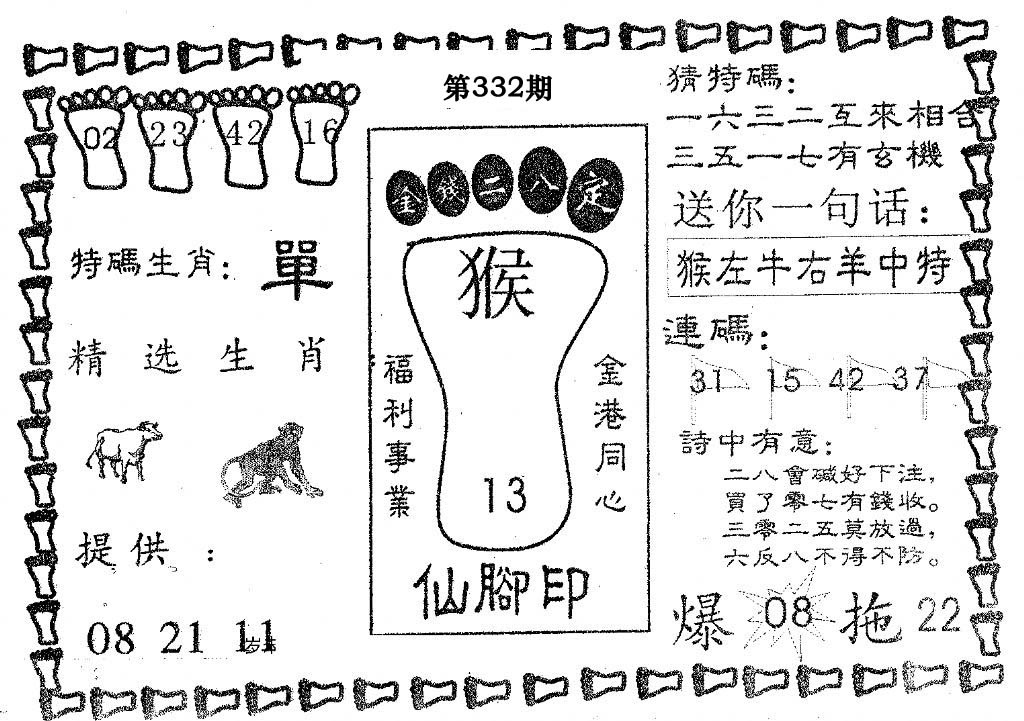 第332期
02 23 42 16
特碼生肖：單
精选生肖
提供：
08 21 11
金錢二八定
猴
13
福利事業
金港同心
仙腳印
猜特碼：
一六三二互來相合
三五一七有玄機
送你一句话：
猴左牛右羊中特
連碼：
31 15 42 37
詩中有意：
二八會碱好下注，
買了零七有錢收。
三零二五莫放過，
六反八不得不防。
爆 08 拖 22